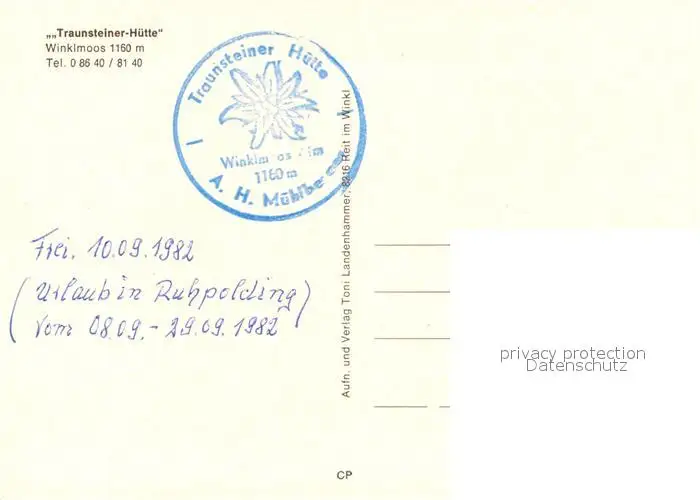 „„Traunsteiner-Hütte“
Winklmoos 1160 m
Tel. 0 86 40 / 81 40
Traunsteiner Hütte
1160 m
A. H.
Aufn. und Verlag Toni Landenhammer, 8216 Reit im Winkl
Frei. 10.09.1982
(Urlaub in Ruhpolding)
vom 08.09. - 29.09.1982
privacy protection
Datenschutz
CP